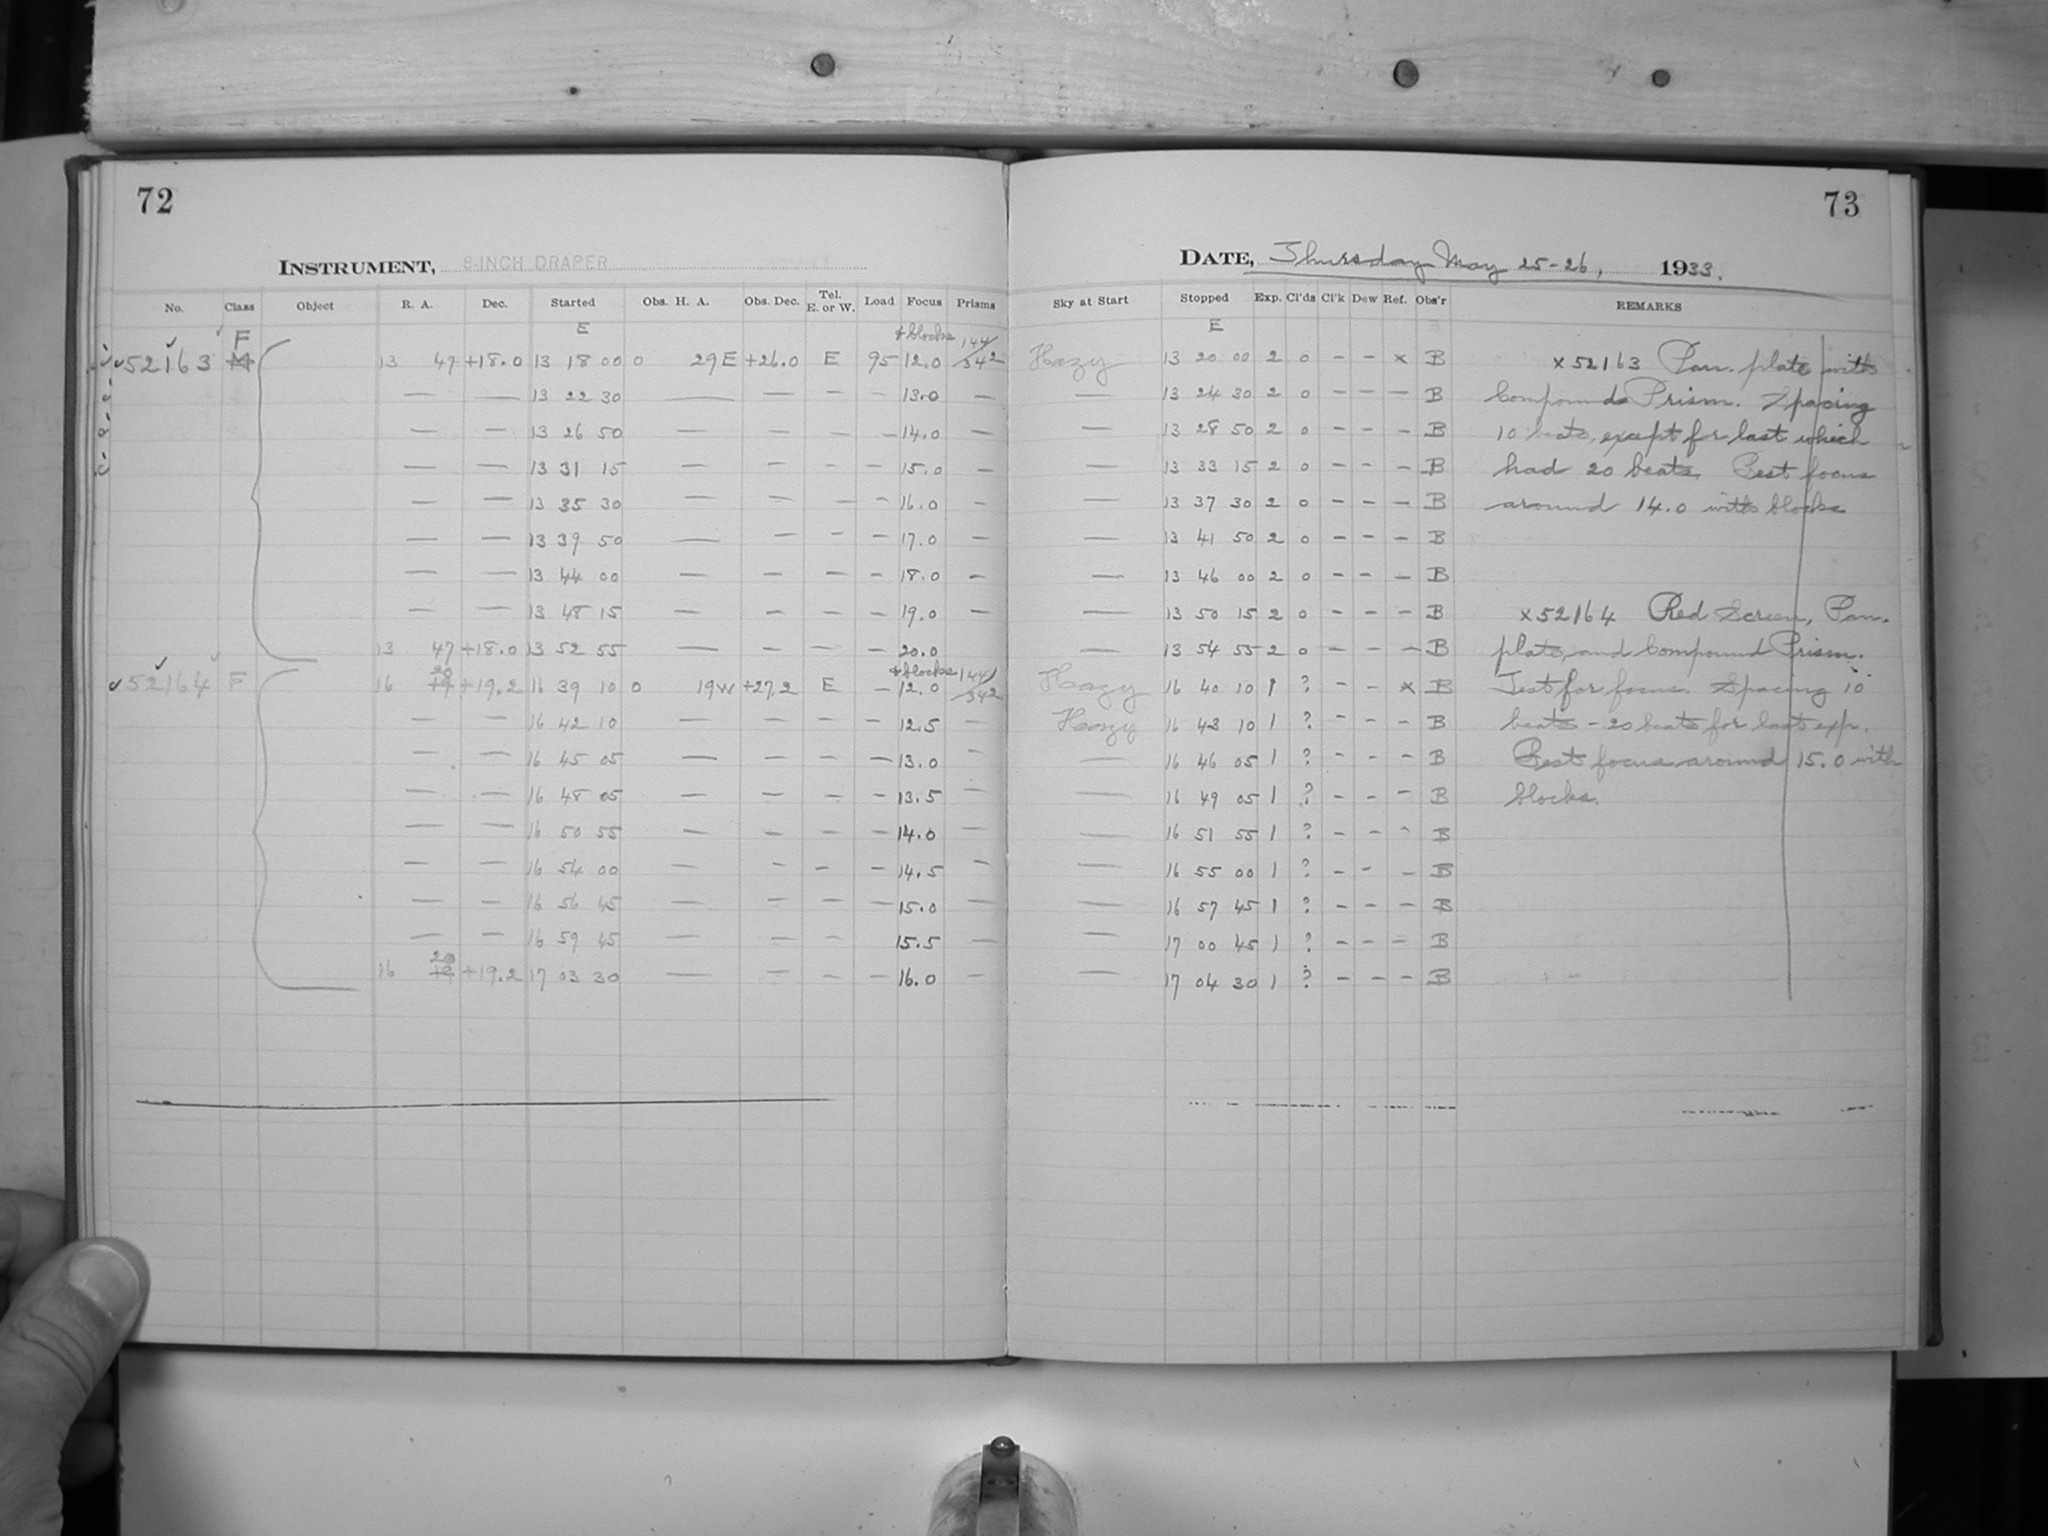 72
73
INSTRUMENT, 8-INCH DRAPER
DATE, Thursday May 25-26, 1933.
No. Class Object R. A. Dec. Started Obs. H. A. Obs. Dec. Tel. E. or W. Load Focus Prisms Sky at Start Stopped Exp. Cl'ds Cl'k Dew Ref. Obs'r REMARKS
F E + blocks 144/ E
✓52163 M 13 47 +18.0 13 18 00 0 29 E +26.0 E 95 12.0 342 Hazy 13 20 00 2 0 – – x B x52163 Pan. plate with
— — 13 22 30 — — – – 13.0 — — 13 24 30 2 0 – – – B Compound Prism. Spacing
— — 13 26 50 — — – – 14.0 — — 13 28 50 2 0 – – – B 10 beats, except for last which
— — 13 31 15 — — – – 15.0 — — 13 33 15 2 0 – – – B had 20 beats. Best focus
— — 13 35 30 — — – – 16.0 — — 13 37 30 2 0 – – – B around 14.0 with blocks
— — 13 39 50 — — – – 17.0 — — 13 41 50 2 0 – – – B
— — 13 44 00 — — – – 18.0 — — 13 46 00 2 0 – – – B
— — 13 48 15 — — – – 19.0 — — 13 50 15 2 0 – – – B x52164 Red Screen, Pan.
13 47 +18.0 13 52 55 — — – – 20.0 13 54 55 2 0 – – – B plate, and Compound Prism.
20 + blocks 144/
✓52164 F 16 19 +19.2 16 39 10 0 19 W +27.2 E – 12.0 342 Hazy 16 40 10 1 ? – – x B Test for focus. Spacing 10
— — 16 42 10 — — – – 12.5 — Hazy 16 43 10 1 ? – – – B beats – 20 beats for last exp.
— — 16 45 05 — — – – 13.0 — — 16 46 05 1 ? – – – B Best focus around 15.0 with
— — 16 48 05 — — – – 13.5 — — 16 49 05 1 ? – – – B blocks.
— — 16 50 55 — — – – 14.0 — — 16 51 55 1 ? – – – B
— — 16 54 00 — — – – 14.5 — — 16 55 00 1 ? – – – B
— — 16 56 45 — — – – 15.0 — — 16 57 45 1 ? – – – B
— — 16 59 45 — — – 15.5 — — 17 00 45 1 ? – – – B
20
16 19 +19.2 17 03 30 — — – – 16.0 — — 17 04 30 1 ? – – – B